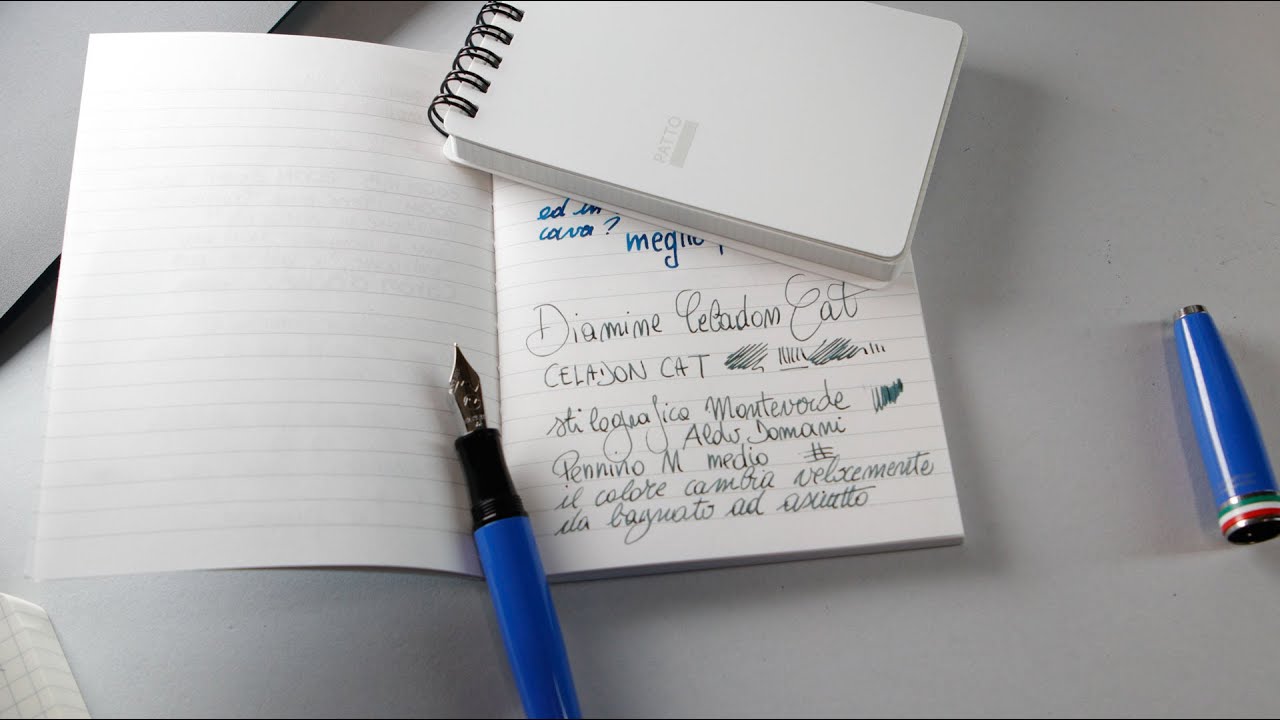 PATTO
ed in
cava? meglio
Diamine Celadon Cat
CELADON CAT
stilografica Monteverde
Aldo Domani
Pennino M medio
il colore cambia velocemente
da bagnato ad asciutto